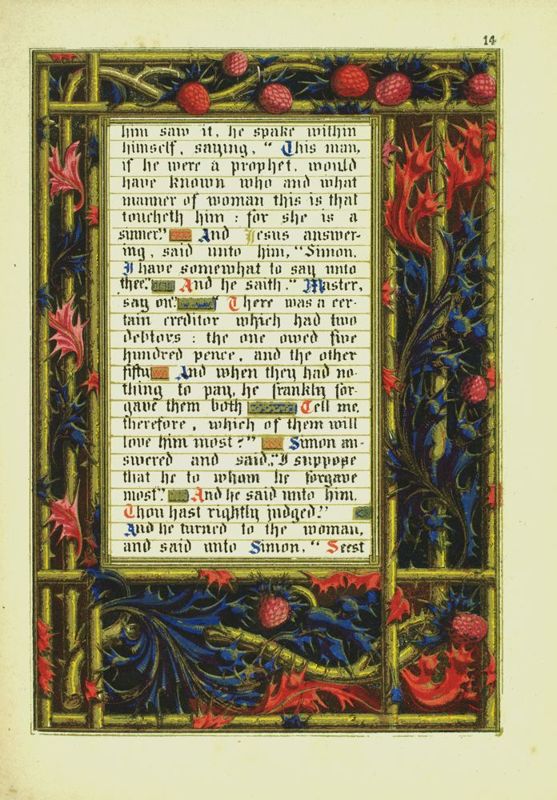 14
him saw it, he spake within
himself, saying, "This man,
if he were a prophet, would
have known who and what
manner of woman this is that
toucheth him: for she is a
sinner." And Jesus answer-
ing, said unto him, "Simon,
I have somewhat to say unto
thee." And he saith, "Master,
say on." There was a cer-
tain creditor which had two
debtors: the one owed five
hundred pence, and the other
fifty. And when they had no-
thing to pay, he frankly for-
gave them both. Tell me,
therefore, which of them will
love him most?" Simon an-
swered and said, "I suppose
that he to whom he forgave
most." And he said unto him,
Thou hast rightly judged."
And he turned to the woman,
and said unto Simon, "Seest